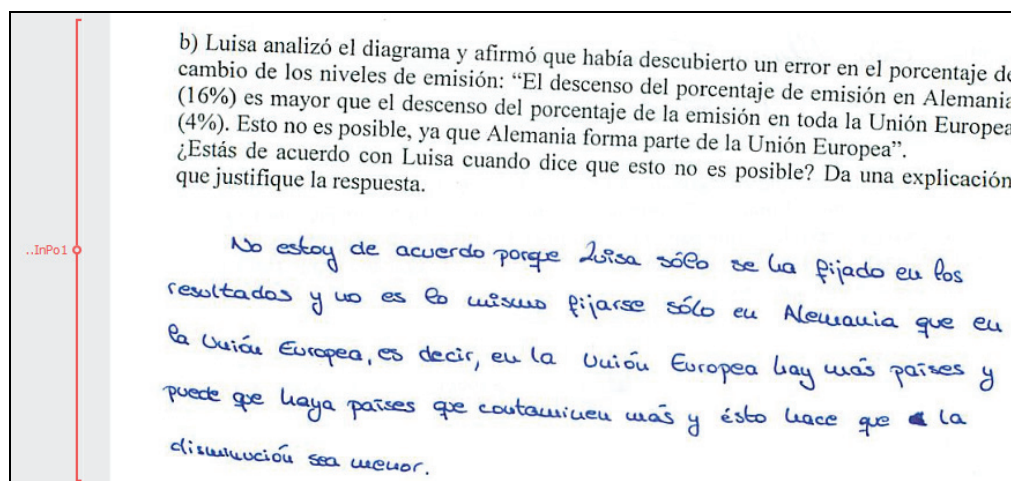 b) Luisa analizó el diagrama y afirmó que había descubierto un error en el porcentaje de
cambio de los niveles de emisión: “El descenso del porcentaje de emisión en Alemania
(16%) es mayor que el descenso del porcentaje de la emisión en toda la Unión Europea
(4%). Esto no es posible, ya que Alemania forma parte de la Unión Europea”.
¿Estás de acuerdo con Luisa cuando dice que esto no es posible? Da una explicación
que justifique la respuesta.
..InPo1
No estoy de acuerdo porque Luisa sólo se ha fijado en los
resultados y no es lo mismo fijarse sólo en Alemania que en
la Unión Europea, es decir, en la Unión Europea hay más países y
puede que haya países que contaminen más y ésto hace que la
disminución sea menor.